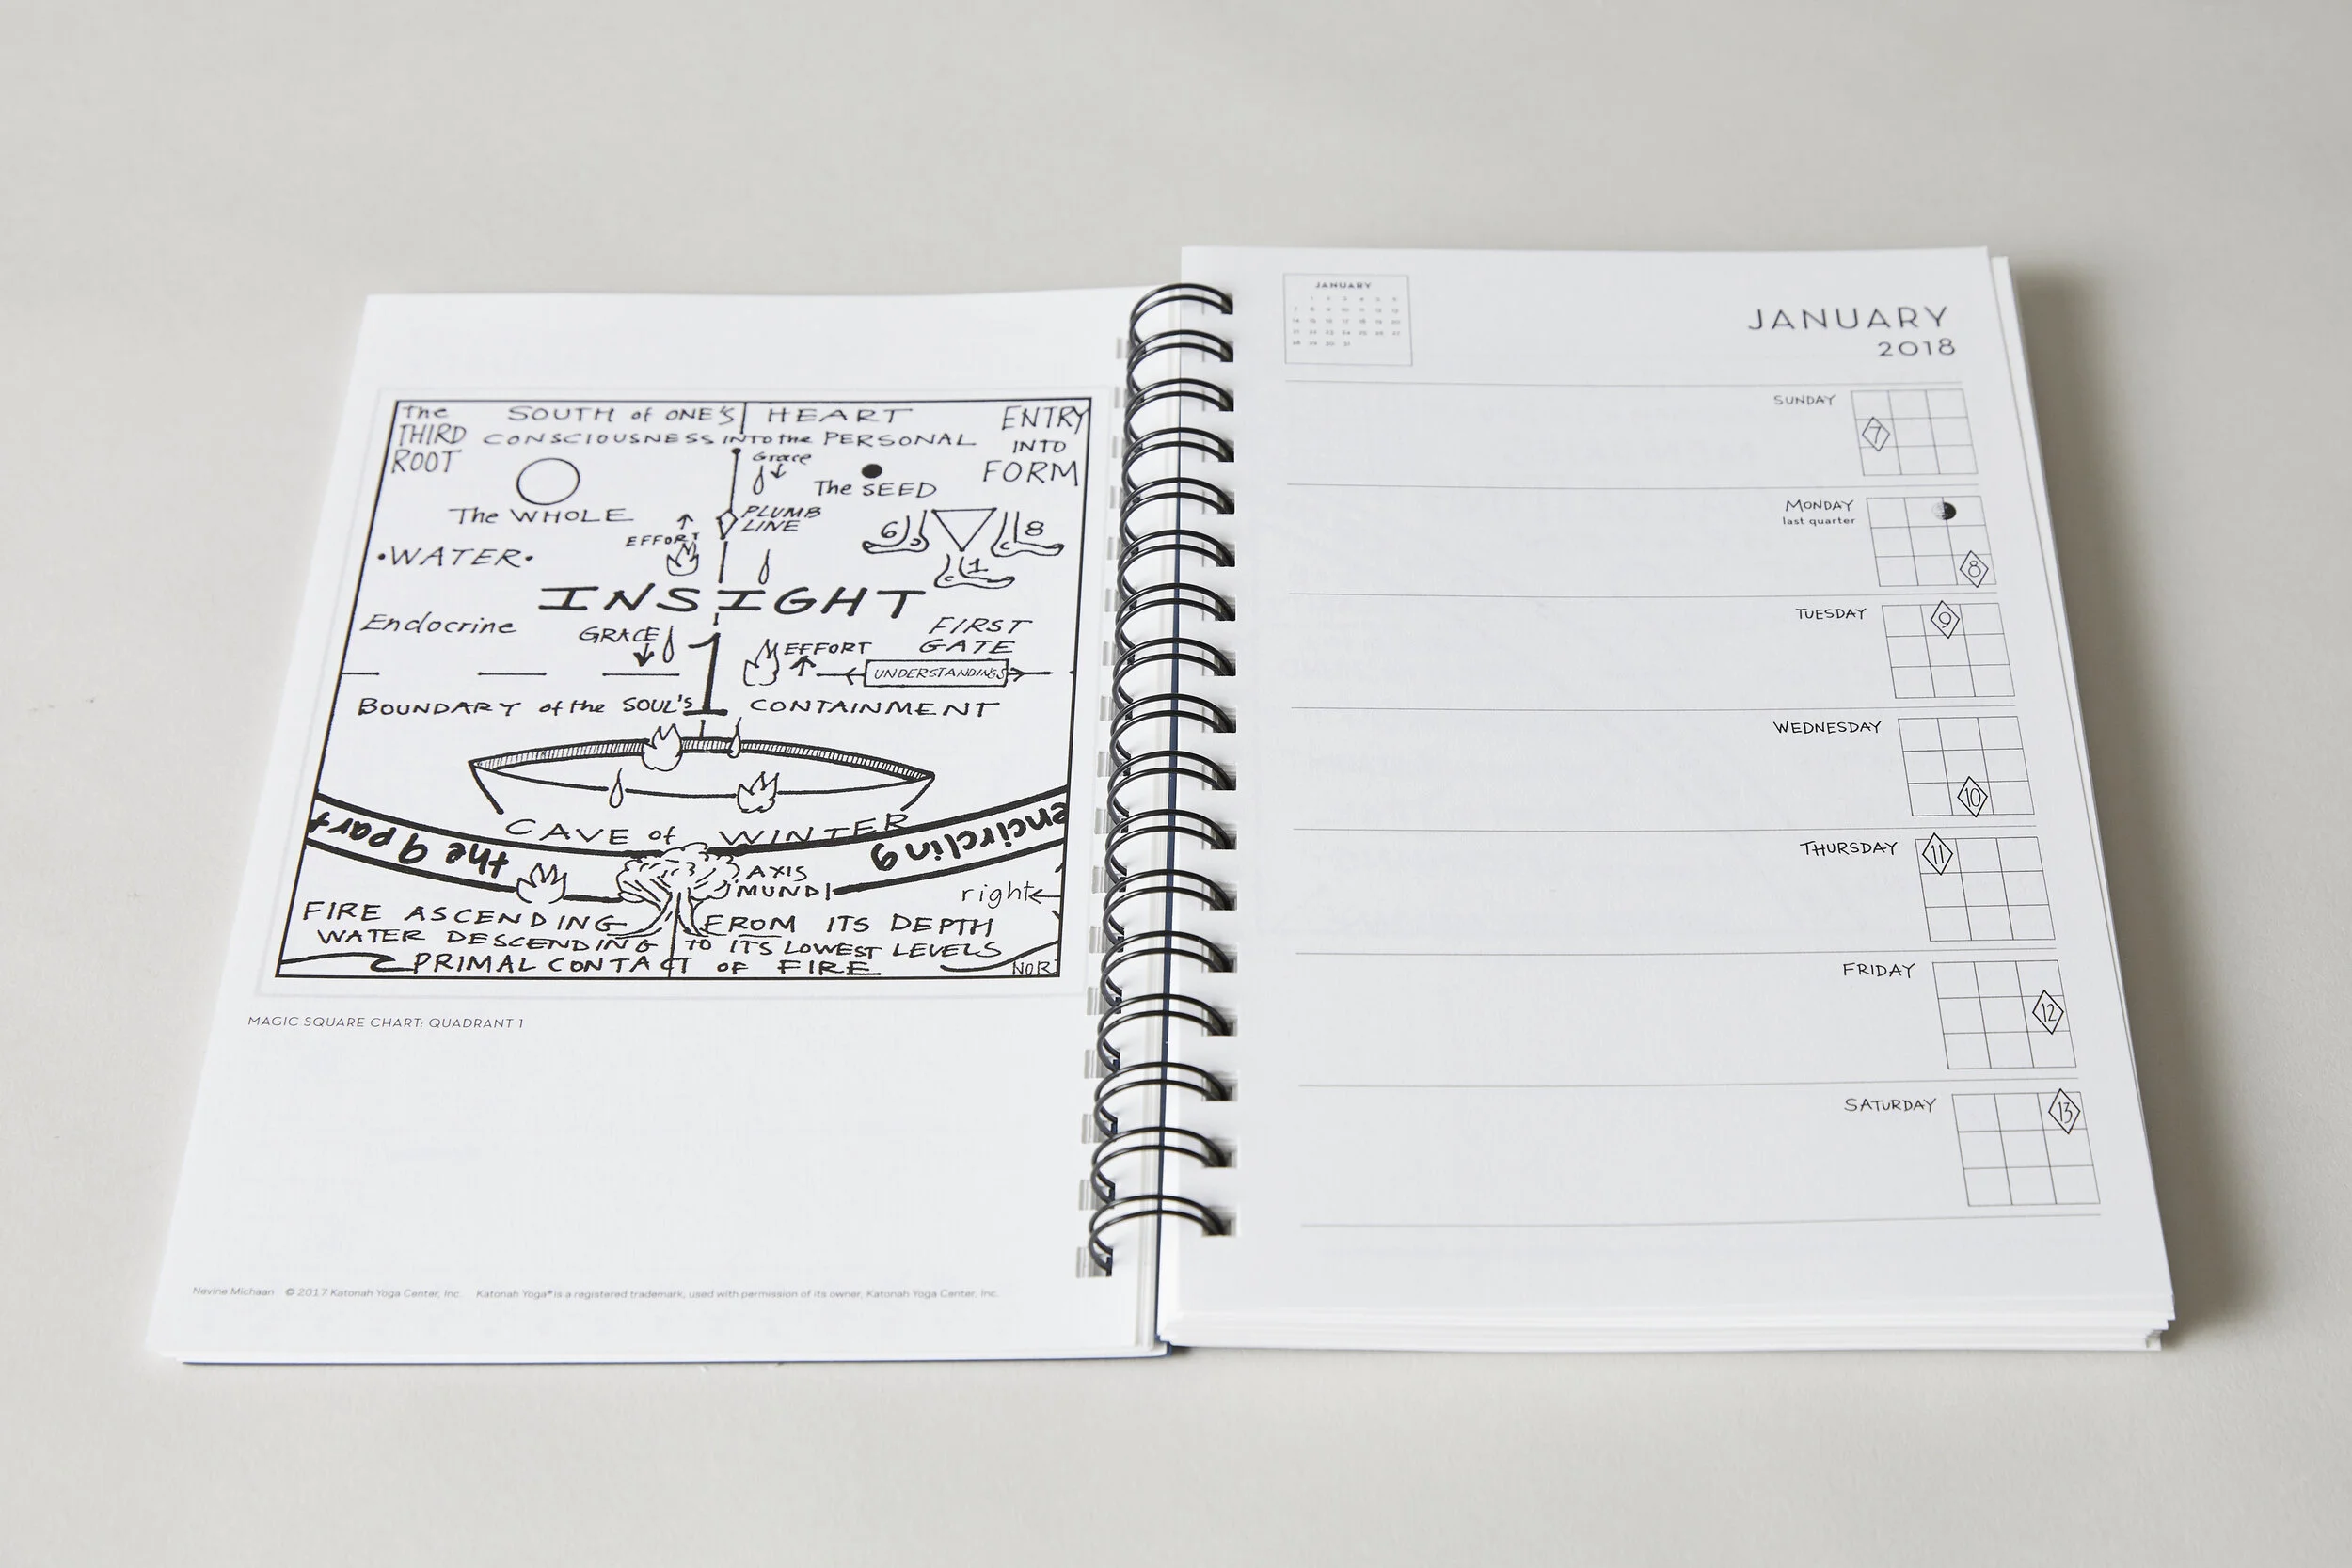 the SOUTH of ONE'S HEART ENTRY
THIRD CONSCIOUSNESS INTO the PERSONAL INTO
ROOT Grace FORM
The SEED
The WHOLE PLUMB
LINE
6 8
EFFORT
•WATER• 1
INSIGHT
Endocrine GRACE 1 EFFORT FIRST
GATE
UNDERSTANDINGS
BOUNDARY of the SOUL'S CONTAINMENT
CAVE of WINTER
encircling the 9 part
AXIS
MUNDI
right
FIRE ASCENDING FROM ITS DEPTH
WATER DESCENDING TO ITS LOWEST LEVELS
PRIMAL CONTACT OF FIRE NOR
MAGIC SQUARE CHART: QUADRANT 1
Nevine Michaan © 2017 Katonah Yoga Center, Inc. Katonah Yoga® is a registered trademark, used with permission of its owner, Katonah Yoga Center, Inc.
JANUARY
JANUARY
2018
SUNDAY
7
MONDAY
last quarter
8
TUESDAY
9
WEDNESDAY
10
THURSDAY
11
FRIDAY
12
SATURDAY
13